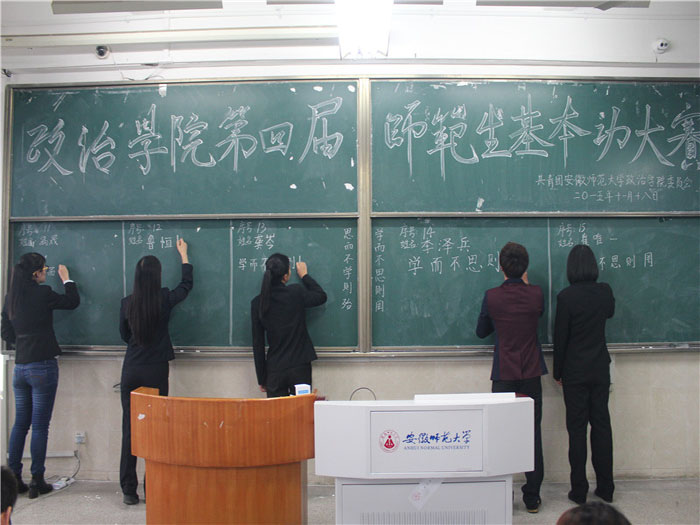 政治學院第四届 師範生基本功大赛
共青团安徽师范大学政治学院委员会
二〇一五年十一月十八日
序号: 11
姓名:
序号: 12
姓名: 鲁恒
序号: 13
姓名: 龚岑
学而不 则
思而不学则殆
学而不思则罔
序号: 14
姓名: 李泽兵
学而不思则
序号: 15
姓名: 唯一
不思则罔
安徽师范大学
ANHUI NORMAL UNIVERSITY